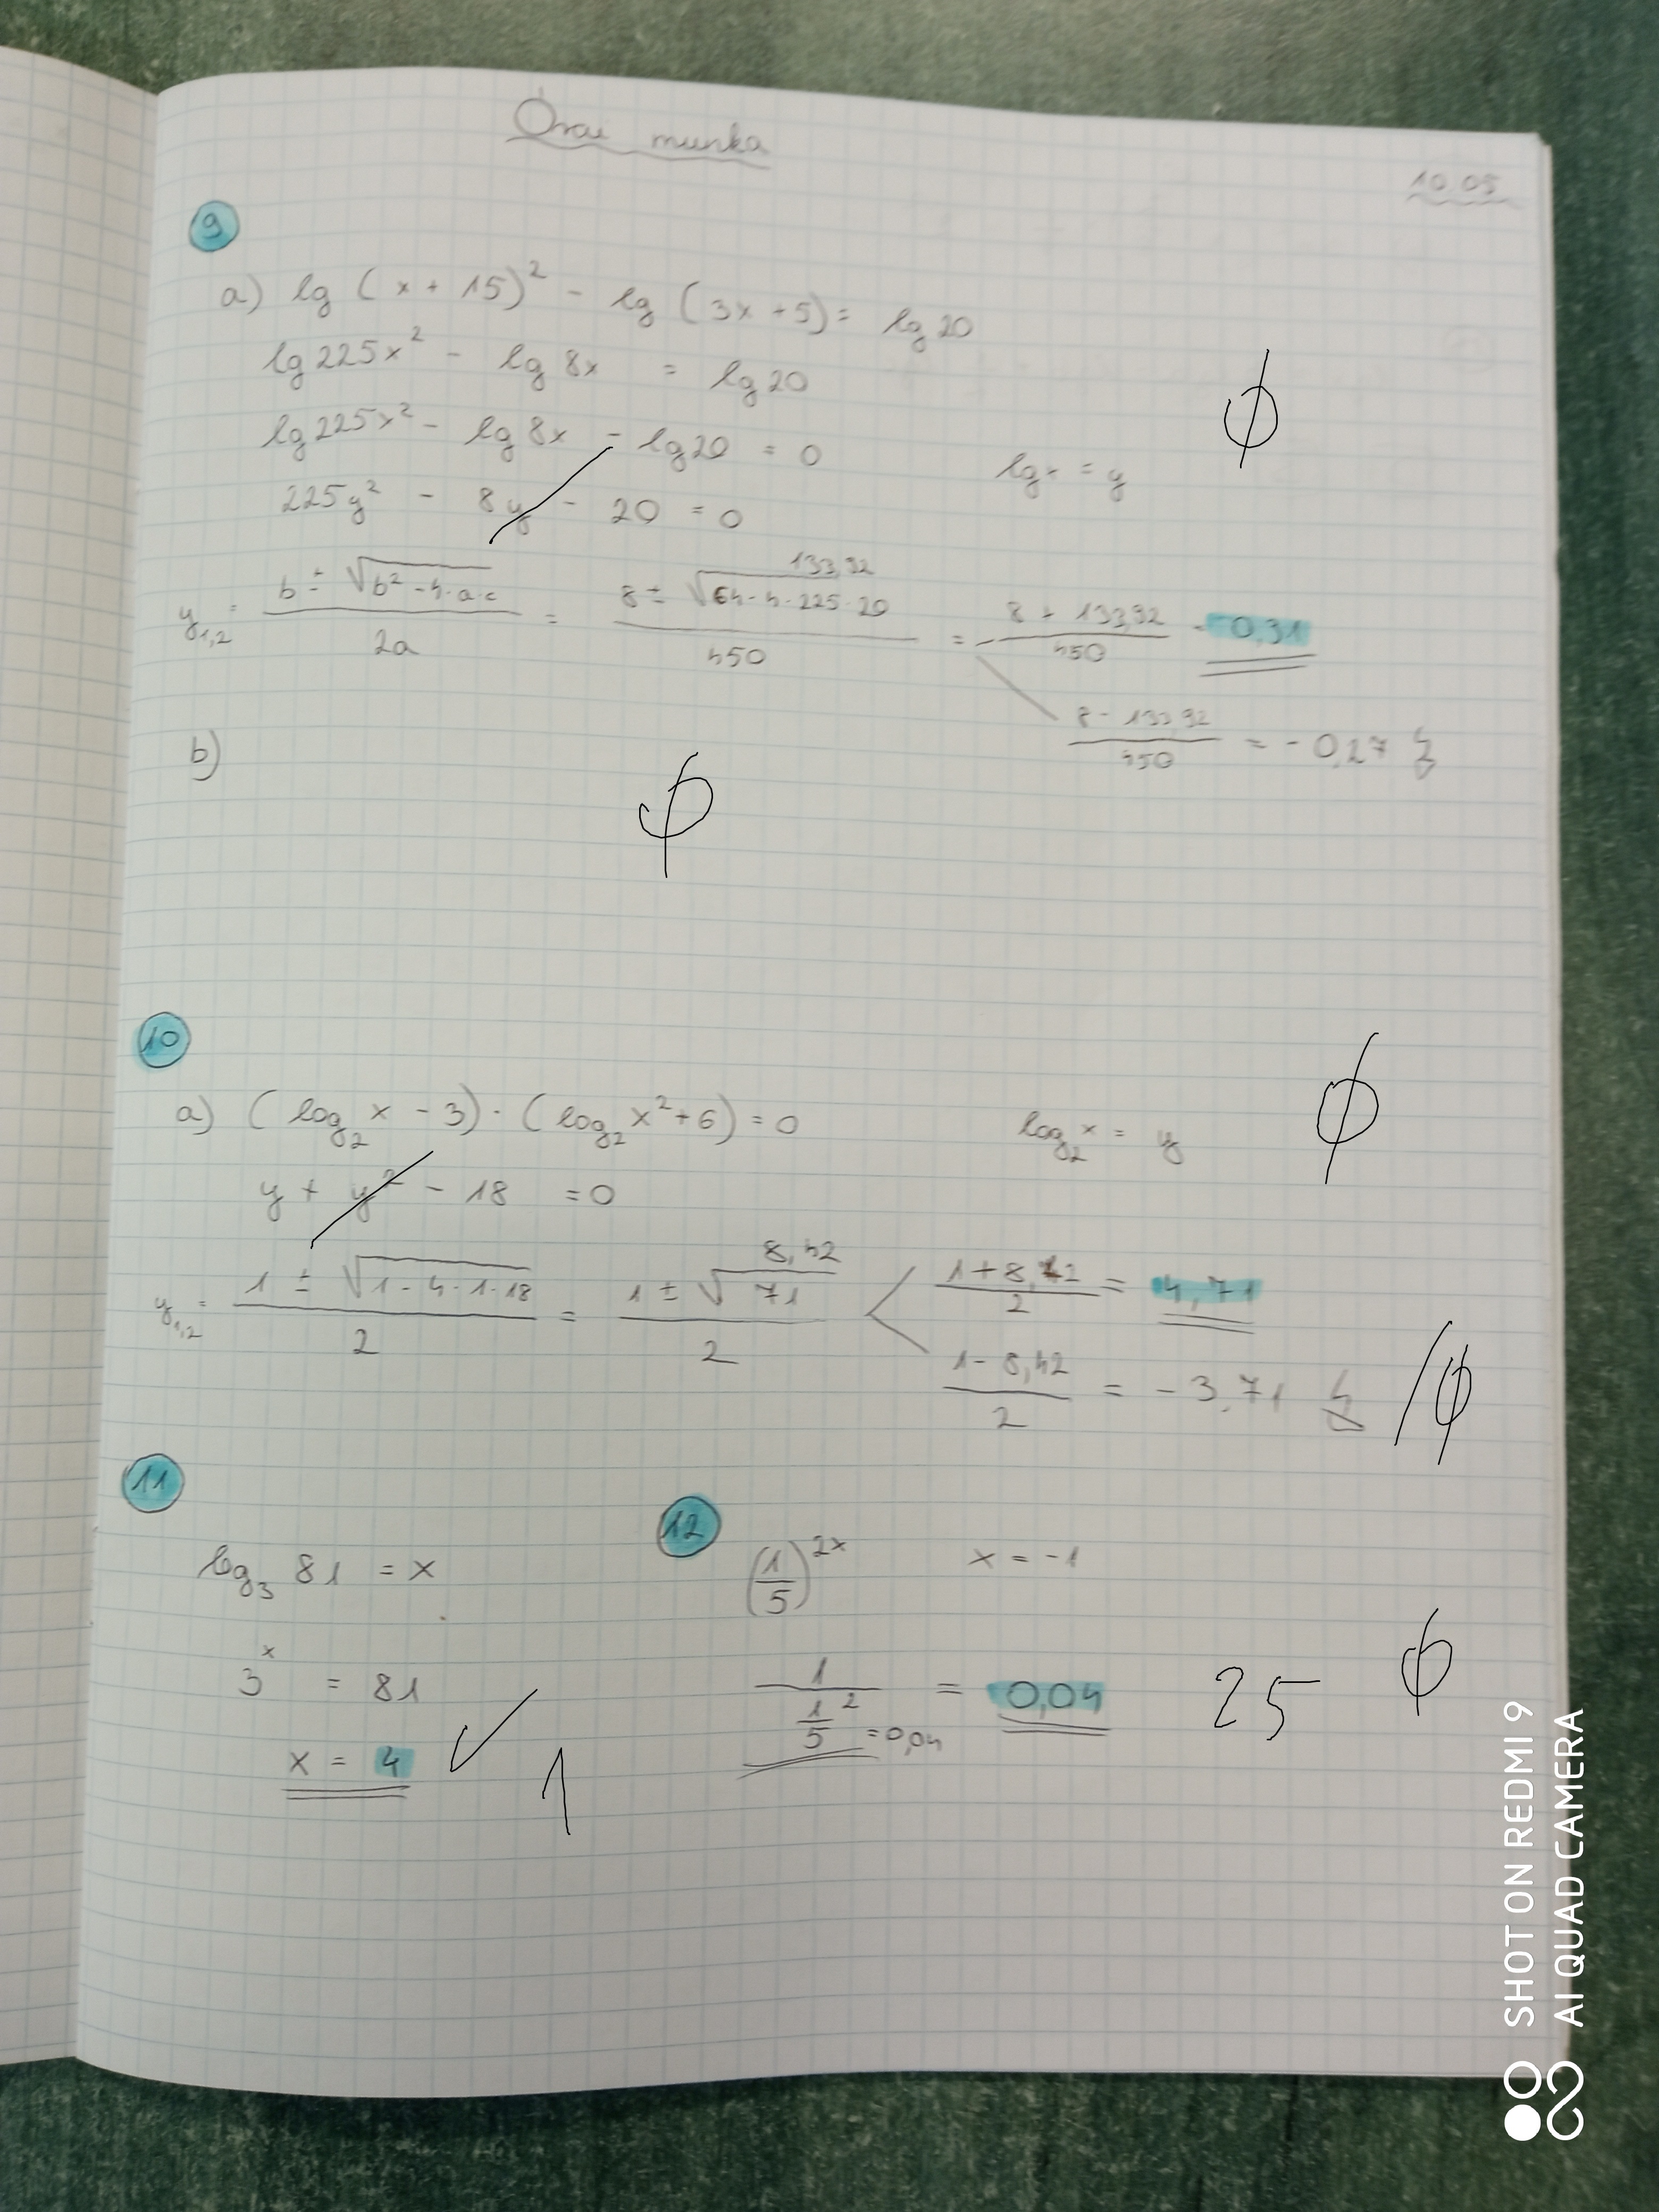 Órai munka
10.05
9
a) lg (x + 15)² - lg (3x + 5) = lg 20
lg 225x² - lg 8x = lg 20
lg 225x² - lg 8x - lg 20 = 0
lg x = y
225y² - 8y - 20 = 0
y₁,₂ = (b ± √(b² - 4·a·c)) / 2a = (8 ± √(64 - 4·225·20)) / 450 = (8 + 133,92) / 450 = 0,31
133,92
(8 - 133,92) / 450 = -0,27 ↯
b)
ϕ
ϕ
10
a) (log₂ x - 3) · (log₂ x² + 6) = 0
log₂ x = y
ϕ
y + y² - 18 = 0
y₁,₂ = (1 ± √(1 - 4·1·18)) / 2 = (1 ± √71) / 2
8,42
(1 + 8,42) / 2 = 4,71
(1 - 8,42) / 2 = -3,71 ↯ / ϕ
11
log₃ 81 = x
3ˣ = 81
x = 4 ✓ 1
12
(1/5)²ˣ x = -1
1 / (1/5)² = 0,04 25 ϕ
= 0,04
SHOT ON REDMI 9
AI QUAD CAMERA